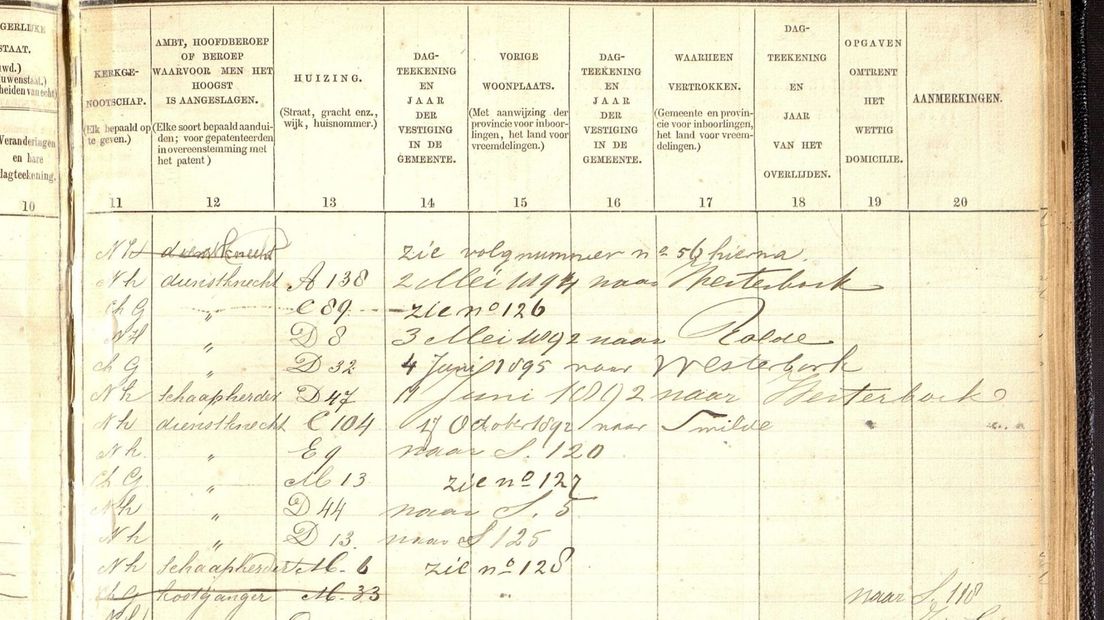 GERLIJKE
STAAT.
uwd.)
(uwenstaat.)
heiden van echt)
Veranderingen
en hare
dagteekening.
10
KERKGE-
NOOTSCHAP.
(Elk bepaald op
te geven.)
11
AMBT, HOOFDBEROEP
OF BEROEP
WAARVOOR MEN HET
HOOGST
IS AANGESLAGEN.
(Elke soort bepaald aandui-
den; voor gepatenteerden
in overeenstemming met
het patent)
12
HUIZING.
(Straat, gracht enz.,
wijk, huisnommer.)
13
DAG-
TEEKENING
EN
JAAR
DER
VESTIGING
IN DE
GEMEENTE.
14
VORIGE
WOONPLAATS.
(Met aanwijzing der
provincie voor inboor-
lingen, het land voor
vreemdelingen.)
15
DAG-
TEEKENING
EN
JAAR
DER
VESTIGING
IN DE
GEMEENTE.
16
WAARHEEN
VERTROKKEN.
(Gemeente en provin-
cie voor inboorlingen,
het land voor vreem-
delingen.)
17
DAG-
TEEKENING
EN
JAAR
VAN HET
OVERLIJDEN.
18
OPGAVEN
OMTRENT
HET
WETTIG
DOMICILIE.
19
AANMERKINGEN.
20
N H dienstknecht zie volgnummer no 56 hierna.
N h dienstknecht A 138 2 Mei 1894 naar Westerbork
Ch G " C 89 zie no 126
N H " D 8 3 Mei 1892 naar Rolde
Ch G " D 32 4 Juni 1895 naar Westerbork
N h schaapherder D 47 11 Juni 1892 naar Westerbork
N h dienstknecht C 104 17 October 1892 naar Smilde
N h " E 9 naar S. 120
Ch G " M 13 zie no 127
N h " D 44 naar S. 5
N h " D 13 naar S 125
N h schaapherder M. 6 zie no 128
Ch G kostganger M. 33 " naar S. 118